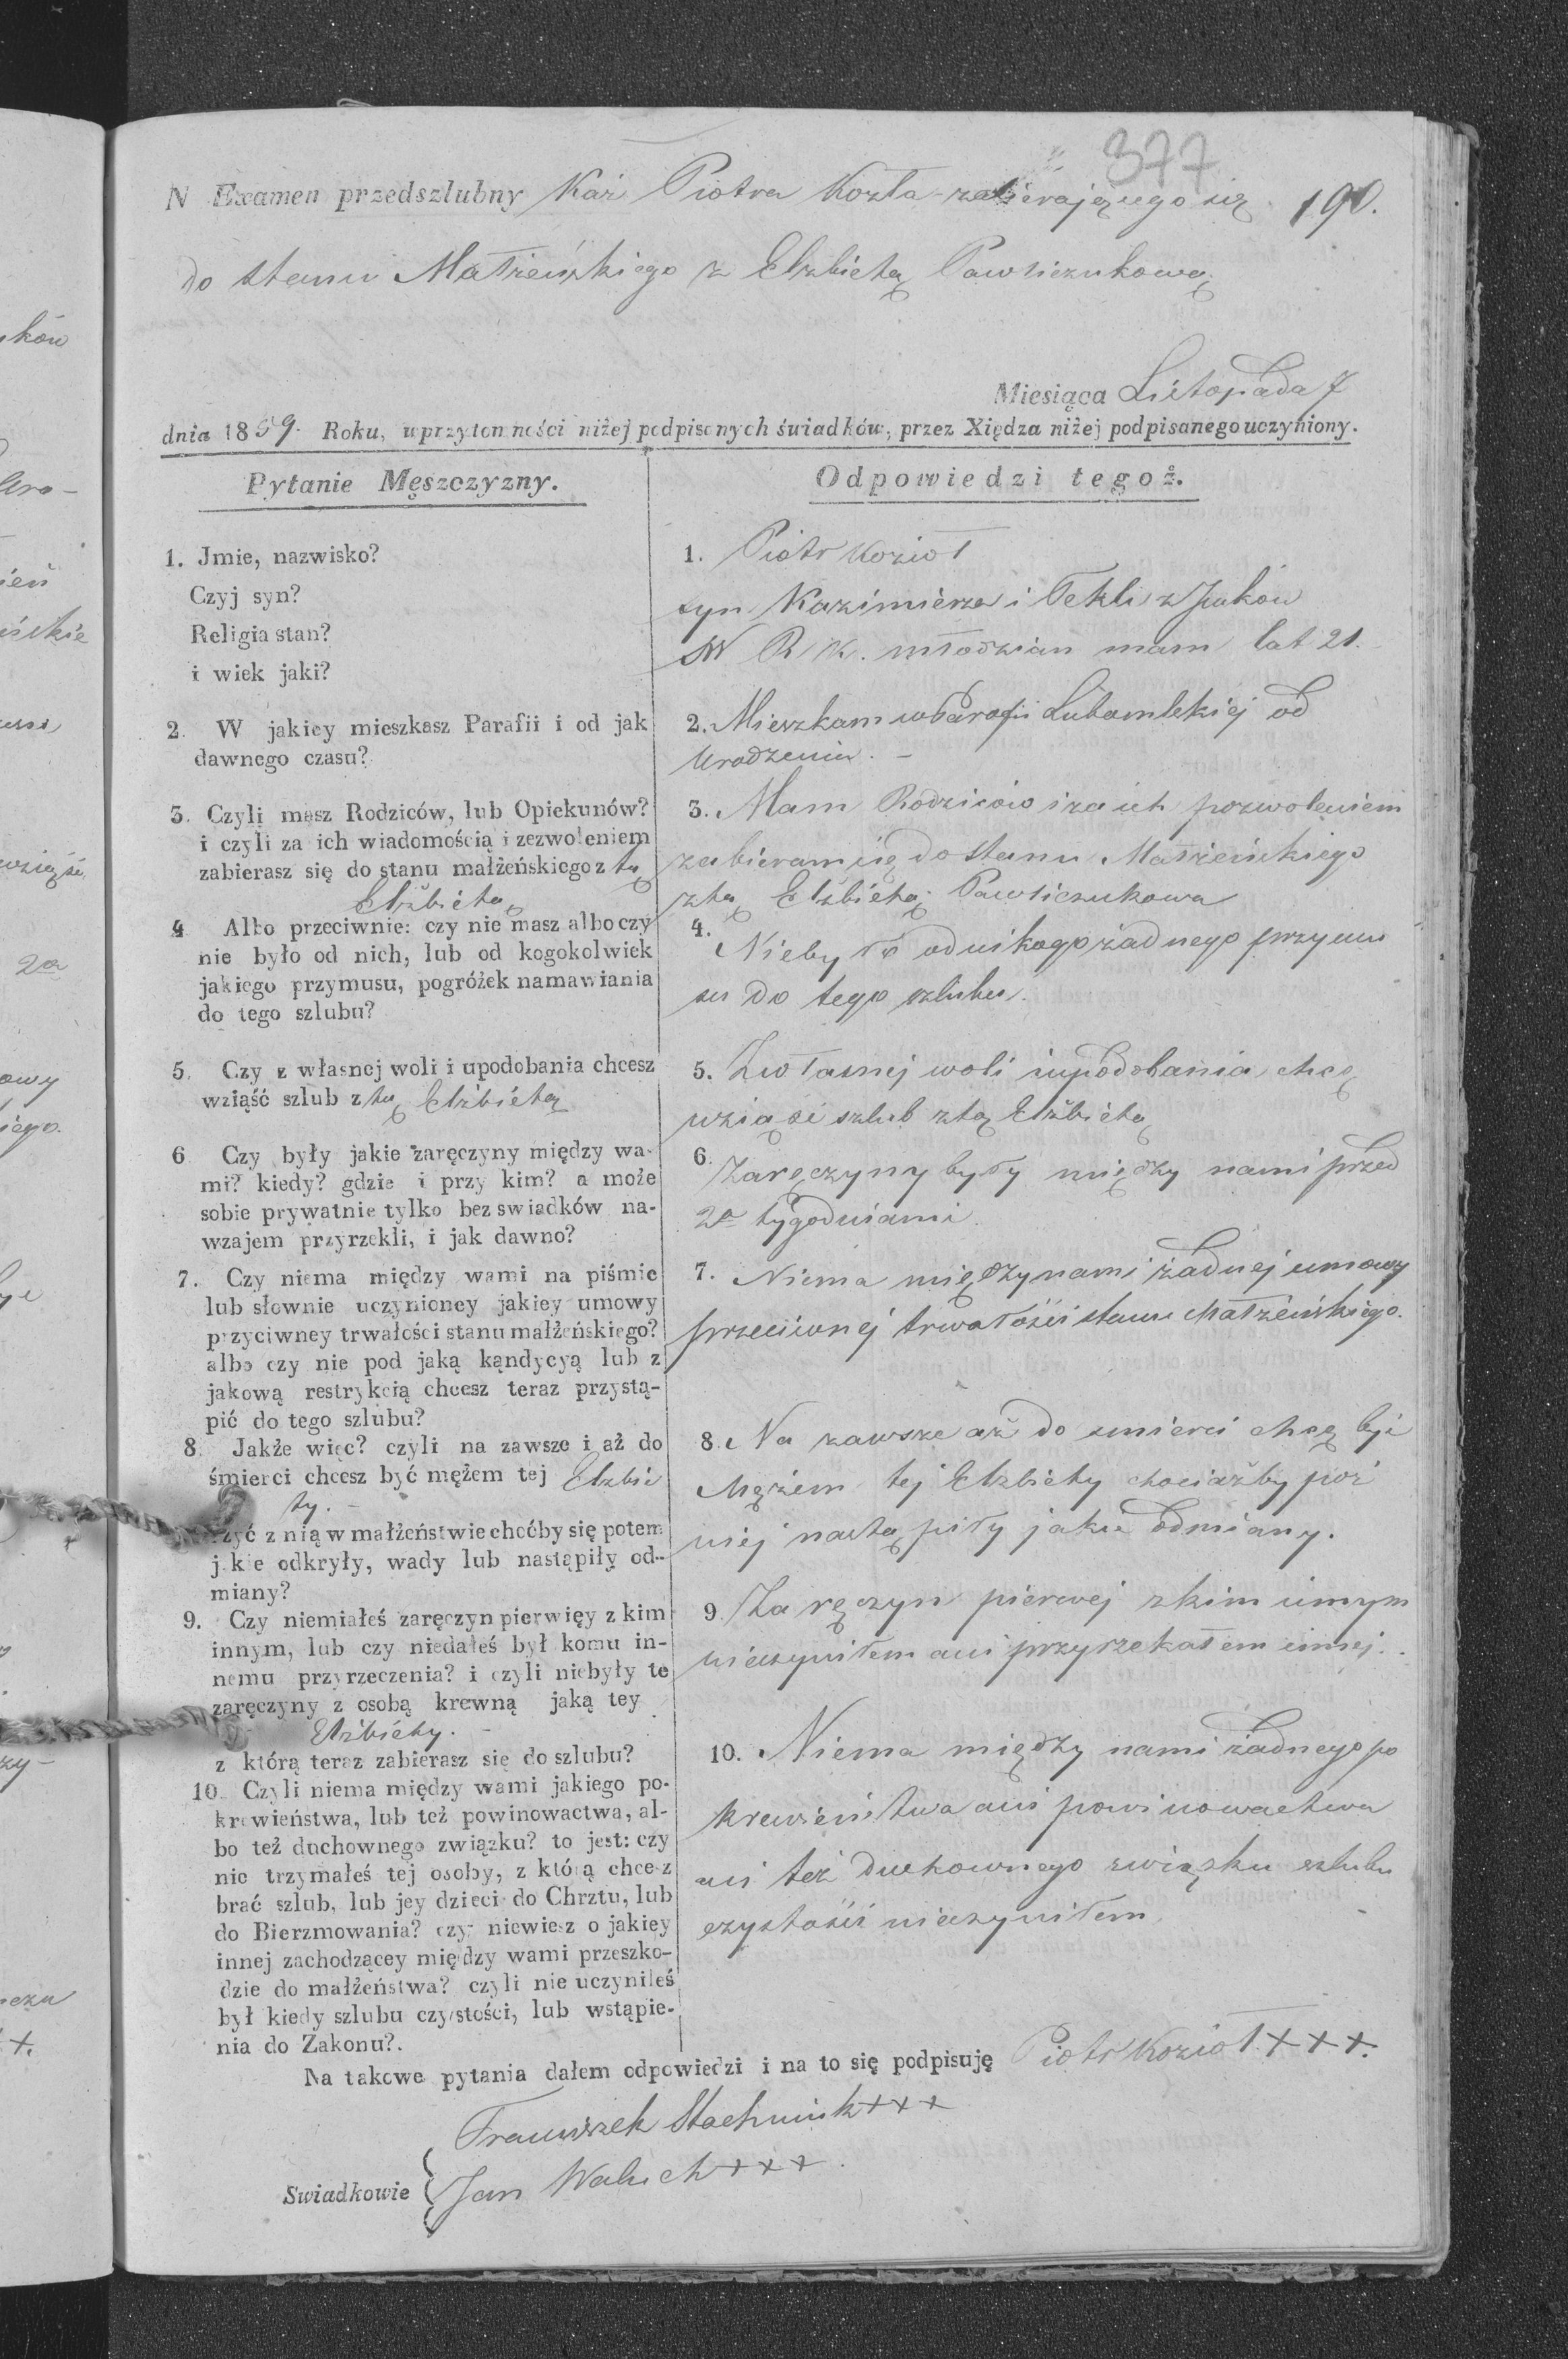 377
N Examen przedszlubny Kaź Piotra Kozła zabierającego się 190.
do stanu Małżeńskiego z Elzbietą Pawliczukową
Miesiąca Listopada 7
dnia 1859. Roku, wprzytomności niżej podpisanych świadków, przez Xiędza niżej podpisanego uczyniony.
Pytanie Męszczyzny.
1. Jmie, nazwisko?
Czyj syn?
Religia stan?
i wiek jaki?
2. W jakiey mieszkasz Parafii i od jak
dawnego czasu?
3. Czyli masz Rodziców, lub Opiekunów?
i czyli za ich wiadomością i zezwoleniem
zabierasz się do stanu małżeńskiego z tą
Elżbietą
4 Albo przeciwnie: czy nie masz albo czy
nie było od nich, lub od kogokolwiek
jakiego przymusu, pogróżek namawiania
do tego szlubu?
5. Czy z własnej woli i upodobania chcesz
wziąść szlub z tą Elżbietą
6 Czy były jakie zaręczyny między wa-
mi? kiedy? gdzie i przy kim? a może
sobie prywatnie tylko bez swiadków na-
wzajem przyrzekli, i jak dawno?
7. Czy niema między wami na piśmie
lub słownie uczynioney jakiey umowy
przyciwney trwałości stanu małżeńskiego?
albo czy nie pod jaką kąndycyą lub z
jakową restrykcią chcesz teraz przystą-
pić do tego szlubu?
8. Jakże więc? czyli na zawsze i aż do
śmierci chcesz być mężem tej Elzbie
ty.-
żyć z nią w małżeństwie choćby się potem
jakie odkryły, wady lub nastąpiły od-
miany?
9. Czy niemiałeś zaręczyn pierwięy z kim
innym, lub czy niedałeś był komu in-
nemu przyrzeczenia? i czyli niebyły te
zaręczyny z osobą krewną jaką tey
Elżbiety.-
z którą teraz zabierasz się do szlubu?
10. Czyli niema między wami jakiego po-
krewieństwa, lub też powinowactwa, al-
bo też duchownego związku? to jest: czy
nie trzymałeś tej osoby, z którą chcesz
brać szlub, lub jey dzieci do Chrztu, lub
do Bierzmowania? czy niewiesz o jakiey
innej zachodzącey między wami przeszko-
dzie do małżeństwa? czyli nie uczyniłeś
był kiedy szlubu czystości, lub wstąpie-
nia do Zakonu?.
Odpowiedzi tegoż.
1. Piotr Kozioł
syn Kazimierza i Tekli z Juków
W R K. młodzian mam lat 21.
2. Mieszkam w Parafii Lubomlskiej od
urodzenia.-
3. Mam Rodziców i za ich pozwoleniem
zabieram się do stanu Małżeńskiego
z tą Elżbietą Pawliczukową
4. Nieby ło od nikogo żadnego przymu
su do tego szlubu.
5. Z własnej woli i upodobania chcę
wziąść szlub z tą Elżbietą
6. Zaręczyny były między nami przed
2a tygodniami.
7. Niema między nami żadnej umowy
przeciwnej trwałości stanu Małżeńskiego.
8. Na zawsze aż do smierci chcę być
Mężem tej Elzbiety chociażby póź
niej nastąpiły jakie odmiany.
9. Zaręczyn pierwej z kim innym
nieczyniłem ani przyrzekałem innej.
10. Niema między nami żadnego po
krewieństwa ani powinowactwa
ani też duchownego związku szlubu
czystości nieczyniłem
Na takowe pytania dałem odpowiedzi i na to się podpisuję Piotr Kozioł +++.
Franciszek Stachniuk +++
Swiadkowie Jan Waluch +++.